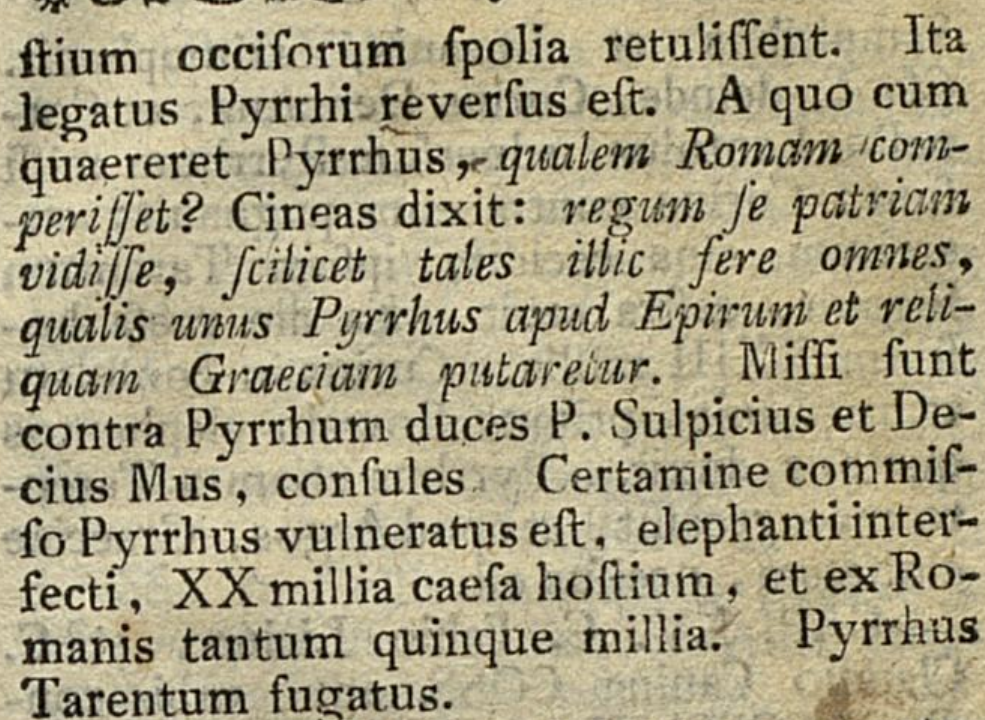 ſtium occiſorum ſpolia retuliſſent. Ita
legatus Pyrrhi reverſus eſt. A quo cum
quaereret Pyrrhus, qualem Romam com-
periſſet? Cineas dixit: regum ſe patriam
vidiſſe, ſcilicet tales illic fere omnes,
qualis unus Pyrrhus apud Epirum et reli-
quam Graeciam putaretur. Miſſi ſunt
contra Pyrrhum duces P. Sulpicius et De-
cius Mus, conſules Certamine commiſ-
ſo Pyrrhus vulneratus eſt, elephanti inter-
fecti, XX millia caeſa hoſtium, et ex Ro-
manis tantum quinque millia. Pyrrhus
Tarentum fugatus.